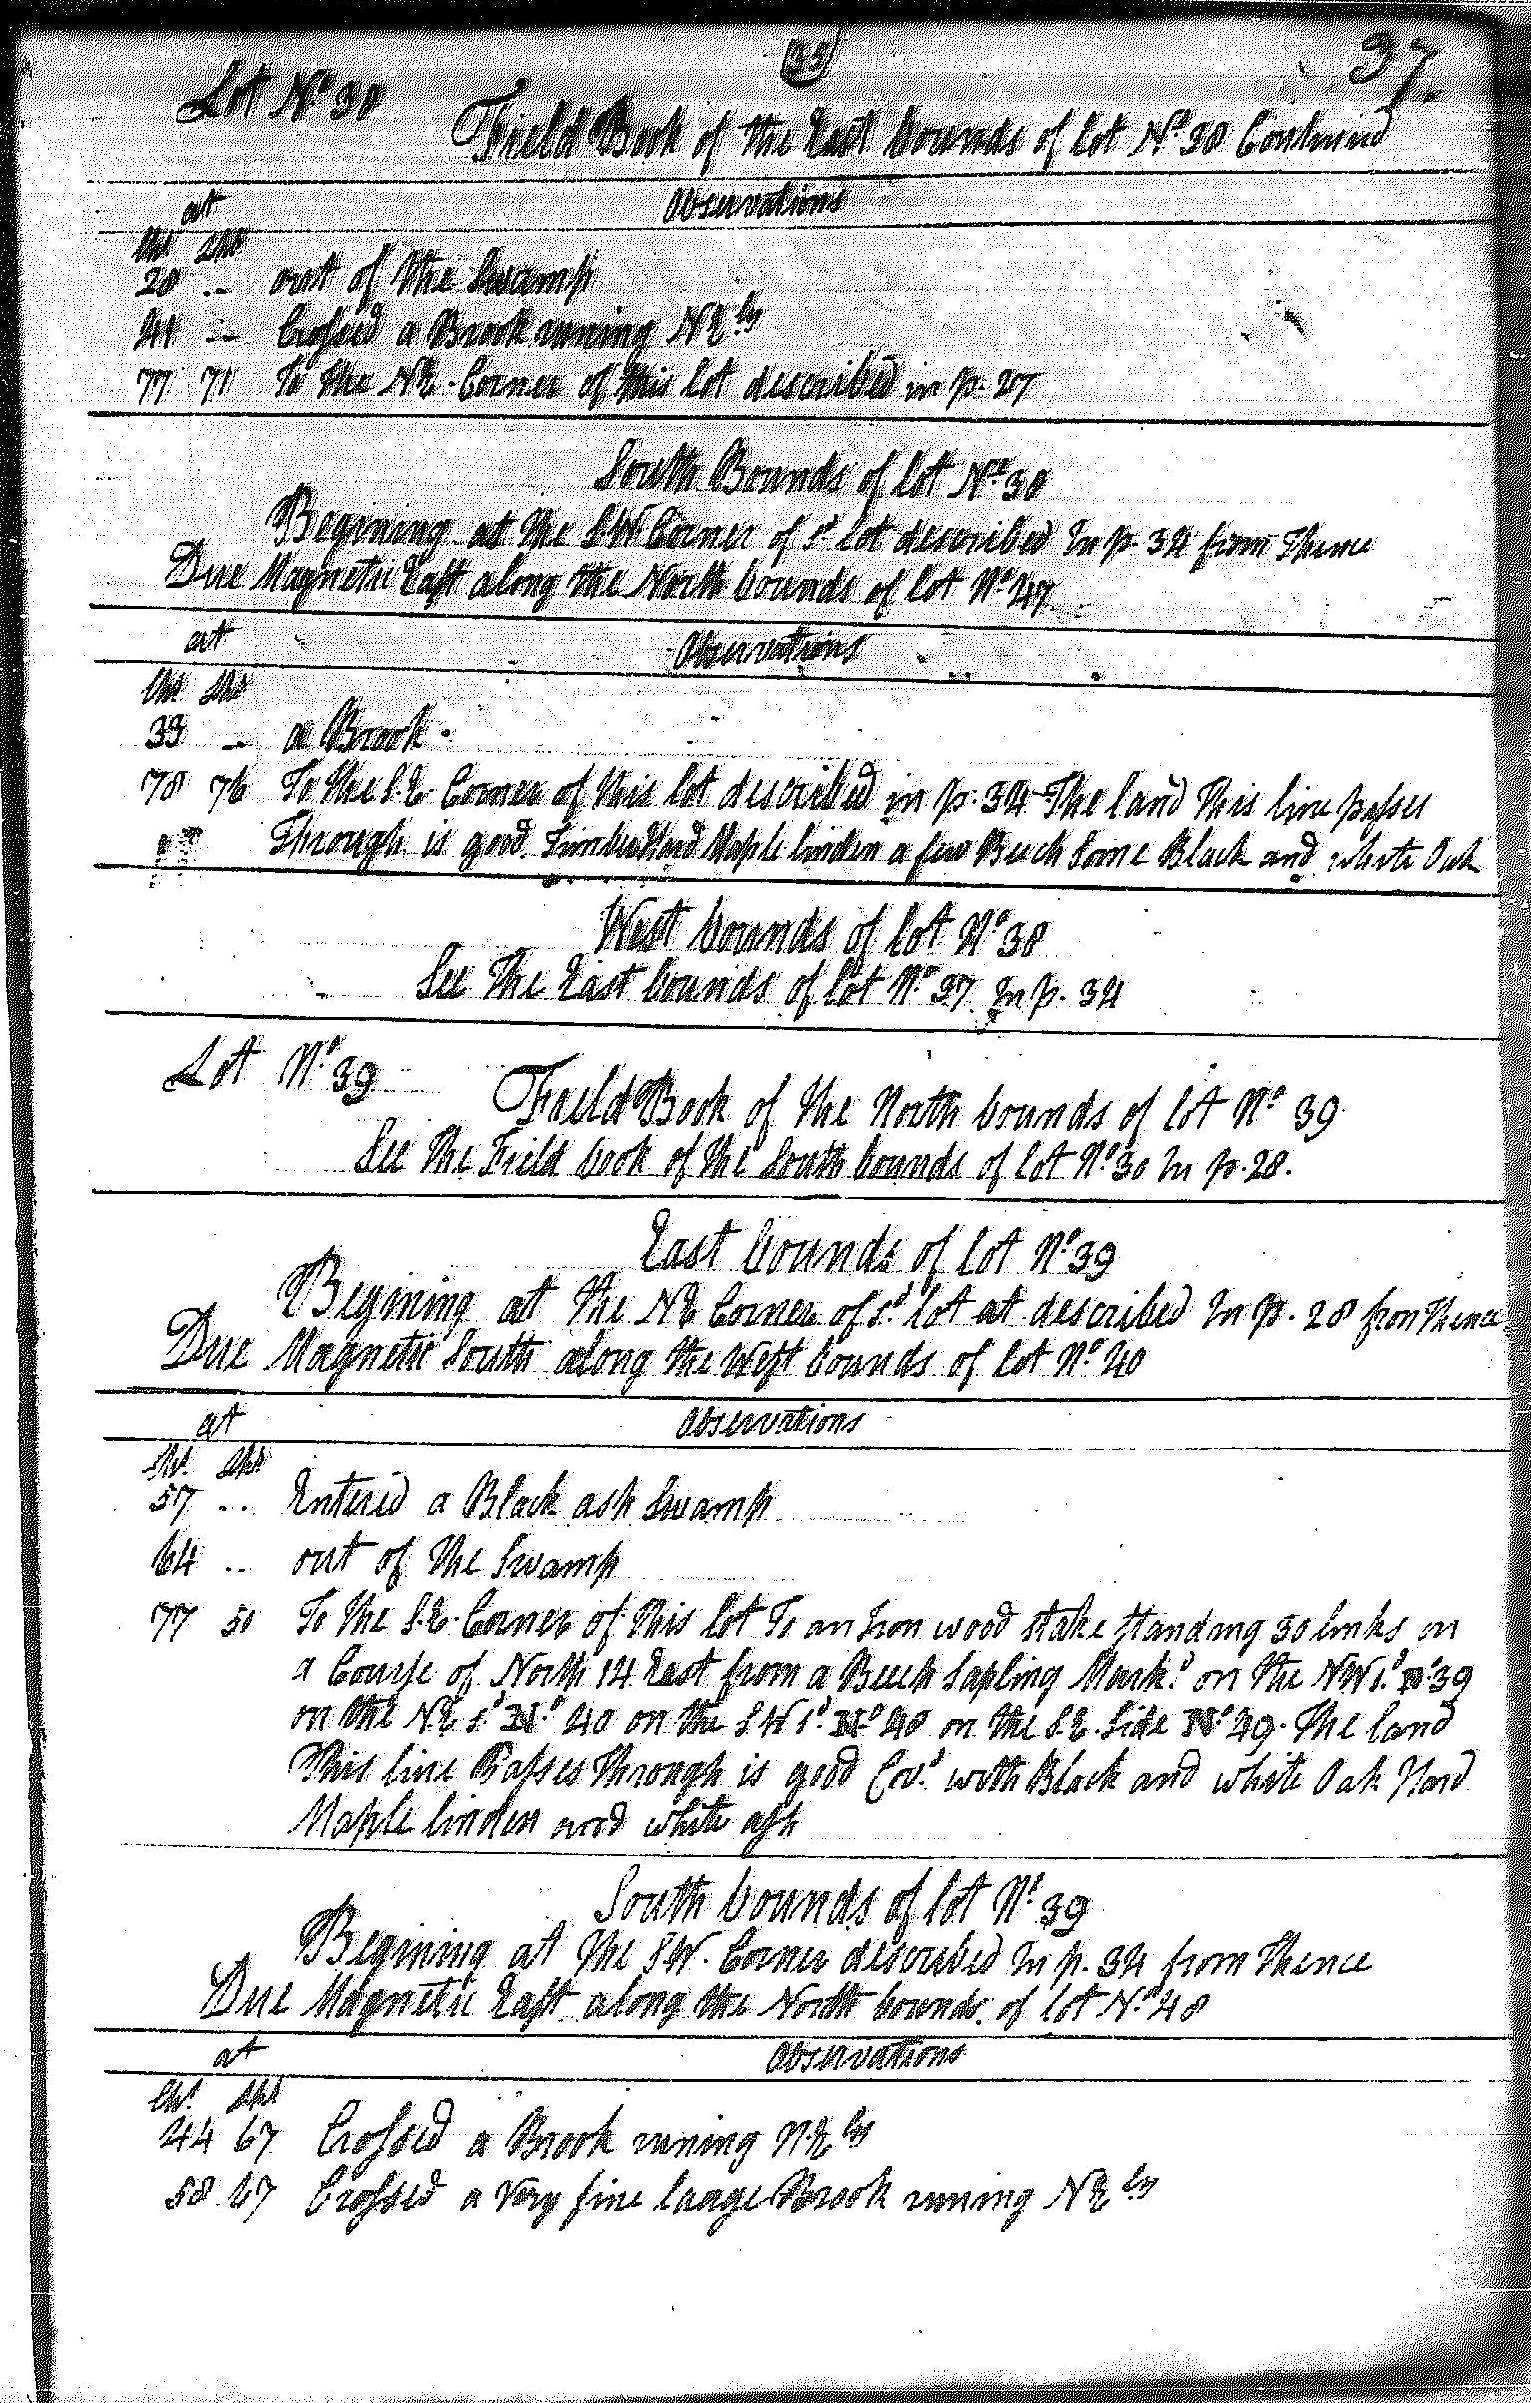 35
37.
Lot No 38
Field Book of the East bounds of lot No 38 Continued
at Observations
Chs Lks
20 .. out of the Swamp
41 .. Crossed a Brook runing NEly
77 71 To the NE. Corner of this lot described in p. 27
South Bounds of lot No 38
Begining at the SW Corner of sd lot described In p. 34 from Thence
Due Magnetic East along the North bounds of lot No 47
at Observations
Chs Lks
33 .. a Brook.
78 76 To the S.E Corner of this lot described in p. 34 The land This line passes
Through is good Timber Hard Maple linden a few Beech Some Black and white Oak
West bounds of lot No 38
See The East bounds of lot No 37 In p. 34
Lot No 39
Field Book of the North bounds of lot No 39
See The Field book of the South bounds of lot No 30 In p. 28.
East bounds of lot No 39
Begining at the NE Corner of sd lot at described In p. 28 from Thence
Due Magnetic South along the West bounds of lot No 40
at Observations
Chs Lks
57 .. Entered a Black ash Swamp
64 .. out of the Swamp
77 50 To the S.E. Corner of this lot To an Iron wood stake standing 30 links on
a Course of North 14 East from a Beech Sapling Markd on the NW sd No 39
on the NE sd No 40 on the SW sd No 48 on the SE. Side No 49. The land
This line Passes Through is good Covd with Black and white Oak Hard
Maple linden wood white ash
South bounds of lot No 39
Begining at the SW. Corner described In p. 34 from Thence
Due Magnetic East along the North bounds of lot No 48
at Observations
Chs Lks
44 67 Crossed a Brook runing N.Ely
58 67 Crossed a Very fine large Brook runing NEly